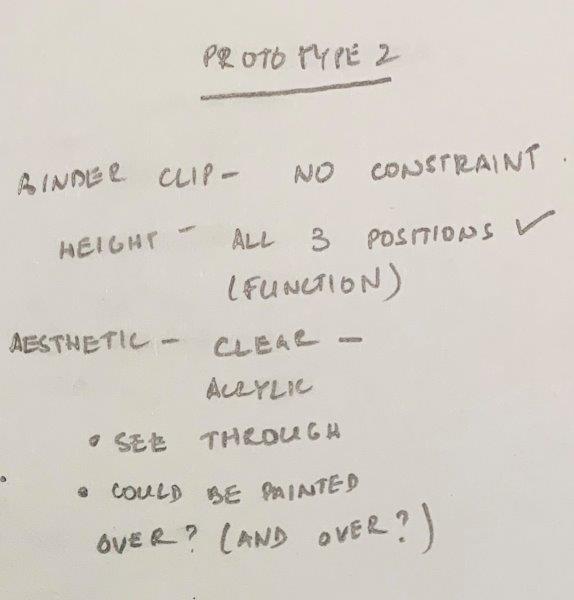 PROTOTYPE 2
BINDER CLIP - NO CONSTRAINT.
HEIGHT - ALL 3 POSITIONS ✓
(FUNCTION)
AESTHETIC - CLEAR -
ACRYLIC
• SEE THROUGH
• COULD BE PAINTED
OVER? (AND OVER?)